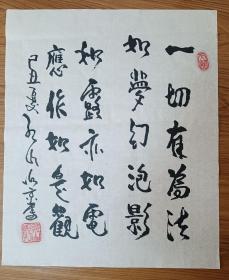 一切有為法
如夢幻泡影
如露亦如電
應作如是觀
己丑夏